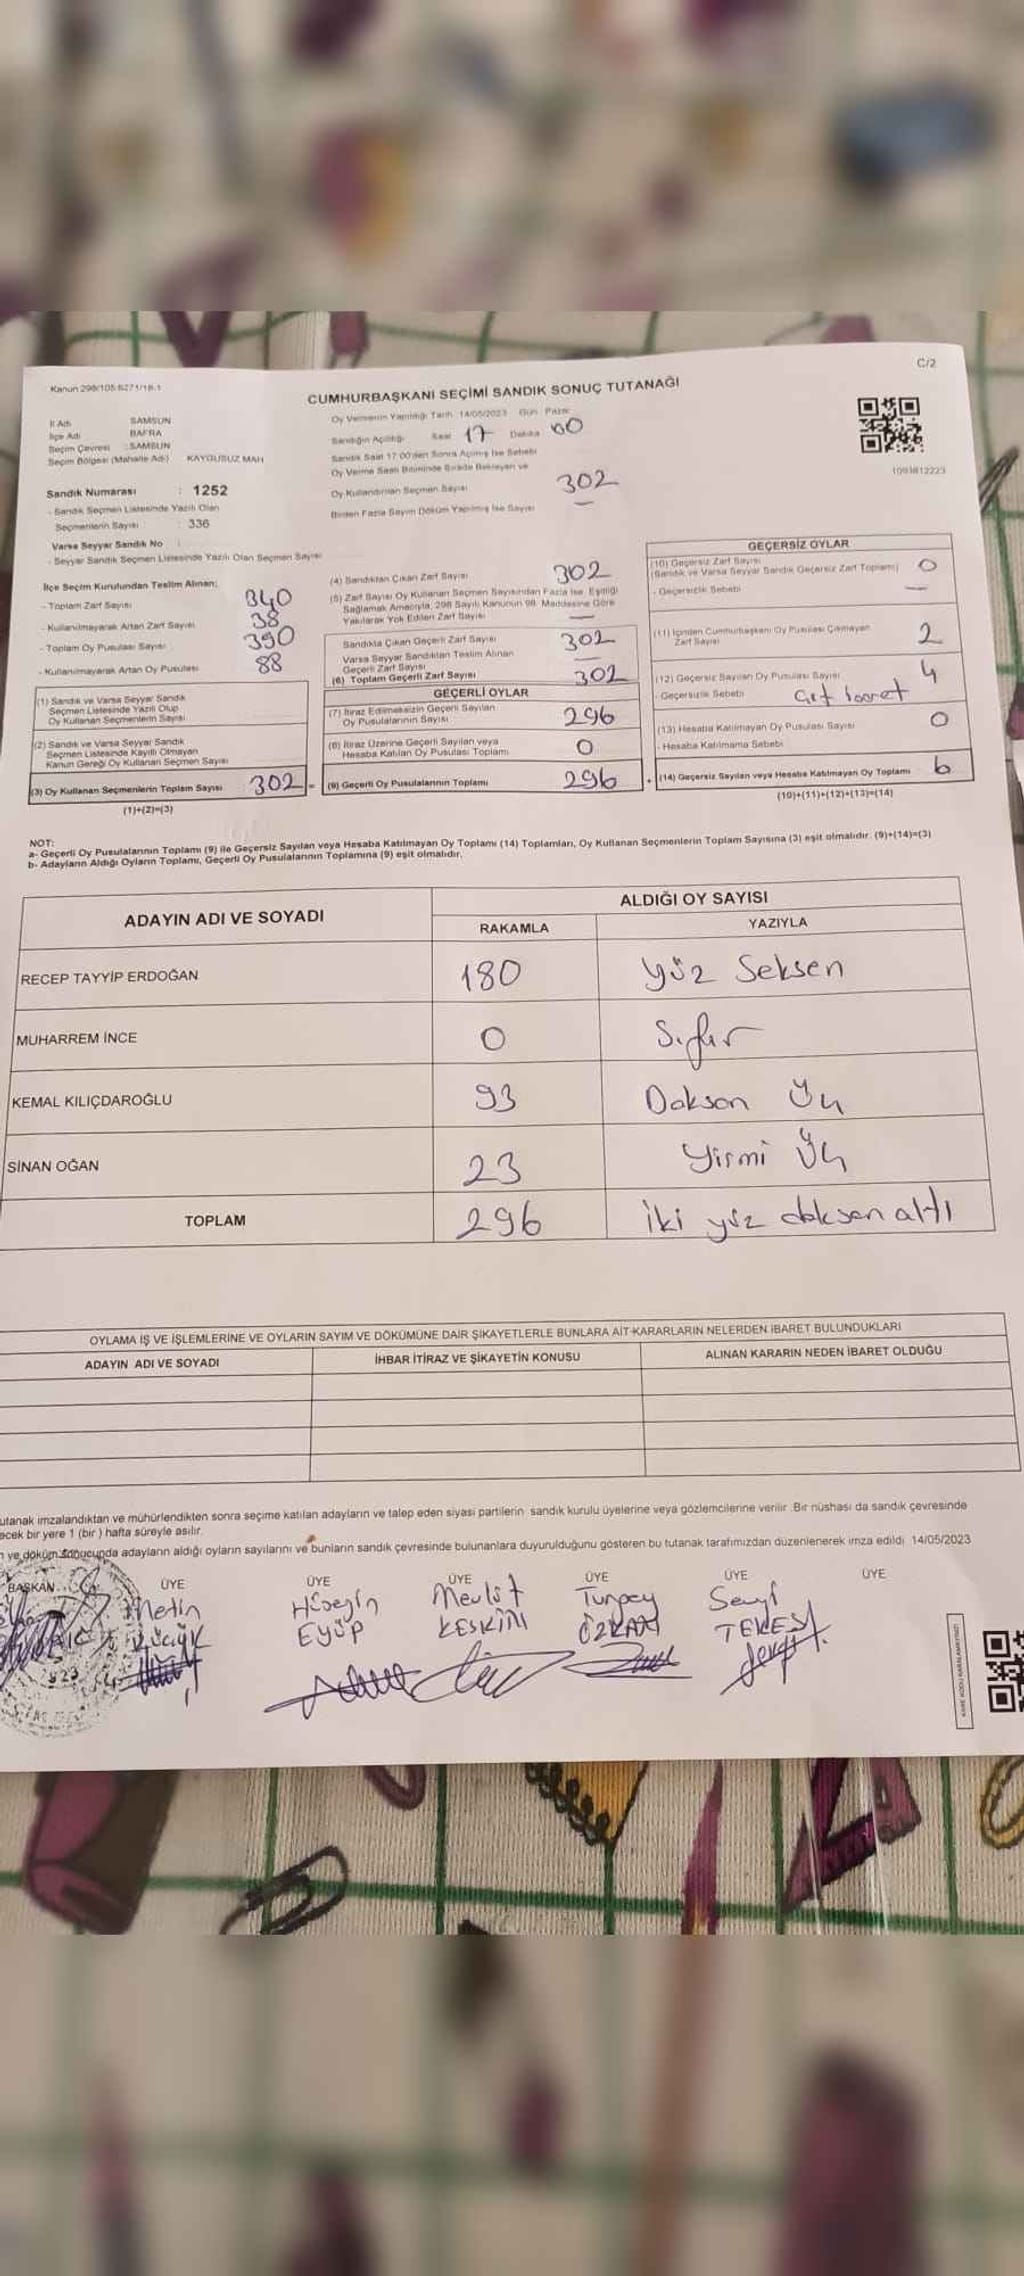 C/2
Kanun 298/105 6271/18-1
CUMHURBAŞKANI SEÇİMİ SANDIK SONUÇ TUTANAĞI
İl Adı SAMSUN
İlçe Adı BAFRA
Seçim Çevresi : SAMSUN
Seçim Bölgesi (Mahalle Adı) KAYGUSUZ MAH
Oy Vermenin Yapıldığı Tarih 14/05/2023 Gün Pazar
Sandığın Açıldığı Saat 17 Dakika 00
Sandık Saat 17:00'den Sonra Açılmış İse Sebebi
Oy Verme Saati Bitiminde Sırada Bekleyen ve
Oy Kullandırılan Seçmen Sayısı 302
Birden Fazla Sayım Döküm Yapılmış İse Sayısı —
1093812223
Sandık Numarası : 1252
- Sandık Seçmen Listesinde Yazılı Olan
Seçmenlerin Sayısı : 336
Varsa Seyyar Sandık No :
- Seyyar Sandık Seçmen Listesinde Yazılı Olan Seçmen Sayısı
İlçe Seçim Kurulundan Teslim Alınan;
- Toplam Zarf Sayısı 340
- Kullanılmayarak Artan Zarf Sayısı 38
- Toplam Oy Pusulası Sayısı 390
- Kullanılmayarak Artan Oy Pusulası 88
(1) Sandık ve Varsa Seyyar Sandık
Seçmen Listesinde Yazılı Olup
Oy Kullanan Seçmenlerin Sayısı
(2) Sandık ve Varsa Seyyar Sandık
Seçmen Listesinde Kayıtlı Olmayan
Kanun Gereği Oy Kullanan Seçmen Sayısı
(3) Oy Kullanan Seçmenlerin Toplam Sayısı 302
(1)+(2)=(3)
(4) Sandıktan Çıkan Zarf Sayısı 302
(5) Zarf Sayısı Oy Kullanan Seçmen Sayısından Fazla İse, Eşitliği
Sağlamak Amacıyla, 298 Sayılı Kanunun 98. Maddesine Göre
Yakılarak Yok Edilen Zarf Sayısı —
Sandıkta Çıkan Geçerli Zarf Sayısı 302
Varsa Seyyar Sandıktan Teslim Alınan
Geçerli Zarf Sayısı —
(6) Toplam Geçerli Zarf Sayısı 302
GEÇERLİ OYLAR
(7) İtiraz Edilmeksizin Geçerli Sayılan
Oy Pusulalarının Sayısı 296
(8) İtiraz Üzerine Geçerli Sayılan veya
Hesaba Katılan Oy Pusulası Toplamı 0
= (9) Geçerli Oy Pusulalarının Toplamı 296
GEÇERSİZ OYLAR
(10) Geçersiz Zarf Sayısı
(Sandık ve Varsa Seyyar Sandık Geçersiz Zarf Toplamı) 0
- Geçersizlik Sebebi —
(11) İçinden Cumhurbaşkanı Oy Pusulası Çıkmayan
Zarf Sayısı 2
(12) Geçersiz Sayılan Oy Pusulası Sayısı 4
- Geçersizlik Sebebi Çift işaret
(13) Hesaba Katılmayan Oy Pusulası Sayısı 0
- Hesaba Katılmama Sebebi
+ (14) Geçersiz Sayılan veya Hesaba Katılmayan Oy Toplamı 6
(10)+(11)+(12)+(13)=(14)
NOT:
a- Geçerli Oy Pusulalarının Toplamı (9) ile Geçersiz Sayılan veya Hesaba Katılmayan Oy Toplamı (14) Toplamları, Oy Kullanan Seçmenlerin Toplam Sayısına (3) eşit olmalıdır. (9)+(14)=(3)
b- Adayların Aldığı Oyların Toplamı, Geçerli Oy Pusulalarının Toplamına (9) eşit olmalıdır.
ADAYIN ADI VE SOYADI ALDIĞI OY SAYISI
RAKAMLA YAZIYLA
RECEP TAYYİP ERDOĞAN 180 yüz Seksen
MUHARREM İNCE 0 Sıfır
KEMAL KILIÇDAROĞLU 93 Doksan Üç
SİNAN OĞAN 23 Yirmi Üç
TOPLAM 296 iki yüz doksan altı
OYLAMA İŞ VE İŞLEMLERİNE VE OYLARIN SAYIM VE DÖKÜMÜNE DAİR ŞİKAYETLERLE BUNLARA AİT KARARLARIN NELERDEN İBARET BULUNDUKLARI
ADAYIN ADI VE SOYADI İHBAR İTİRAZ VE ŞİKAYETİN KONUSU ALINAN KARARIN NEDEN İBARET OLDUĞU
utanak imzalandıktan ve mühürlendikten sonra seçime katılan adayların ve talep eden siyasi partilerin sandık kurulu üyelerine veya gözlemcilerine verilir. Bir nüshası da sandık çevresinde
ecek bir yere 1 (bir ) hafta süreyle asılır.
ve döküm sonucunda adayların aldığı oyların sayılarını ve bunların sandık çevresinde bulunanlara duyurulduğunu gösteren bu tutanak tarafımızdan düzenlenerek imza edildi. 14/05/2023
BAŞKAN ÜYE ÜYE ÜYE ÜYE ÜYE ÜYE
Metin Hüseyin Mevlüt Tunçay
Küçük EYÜP KESKİN ÖZKAN